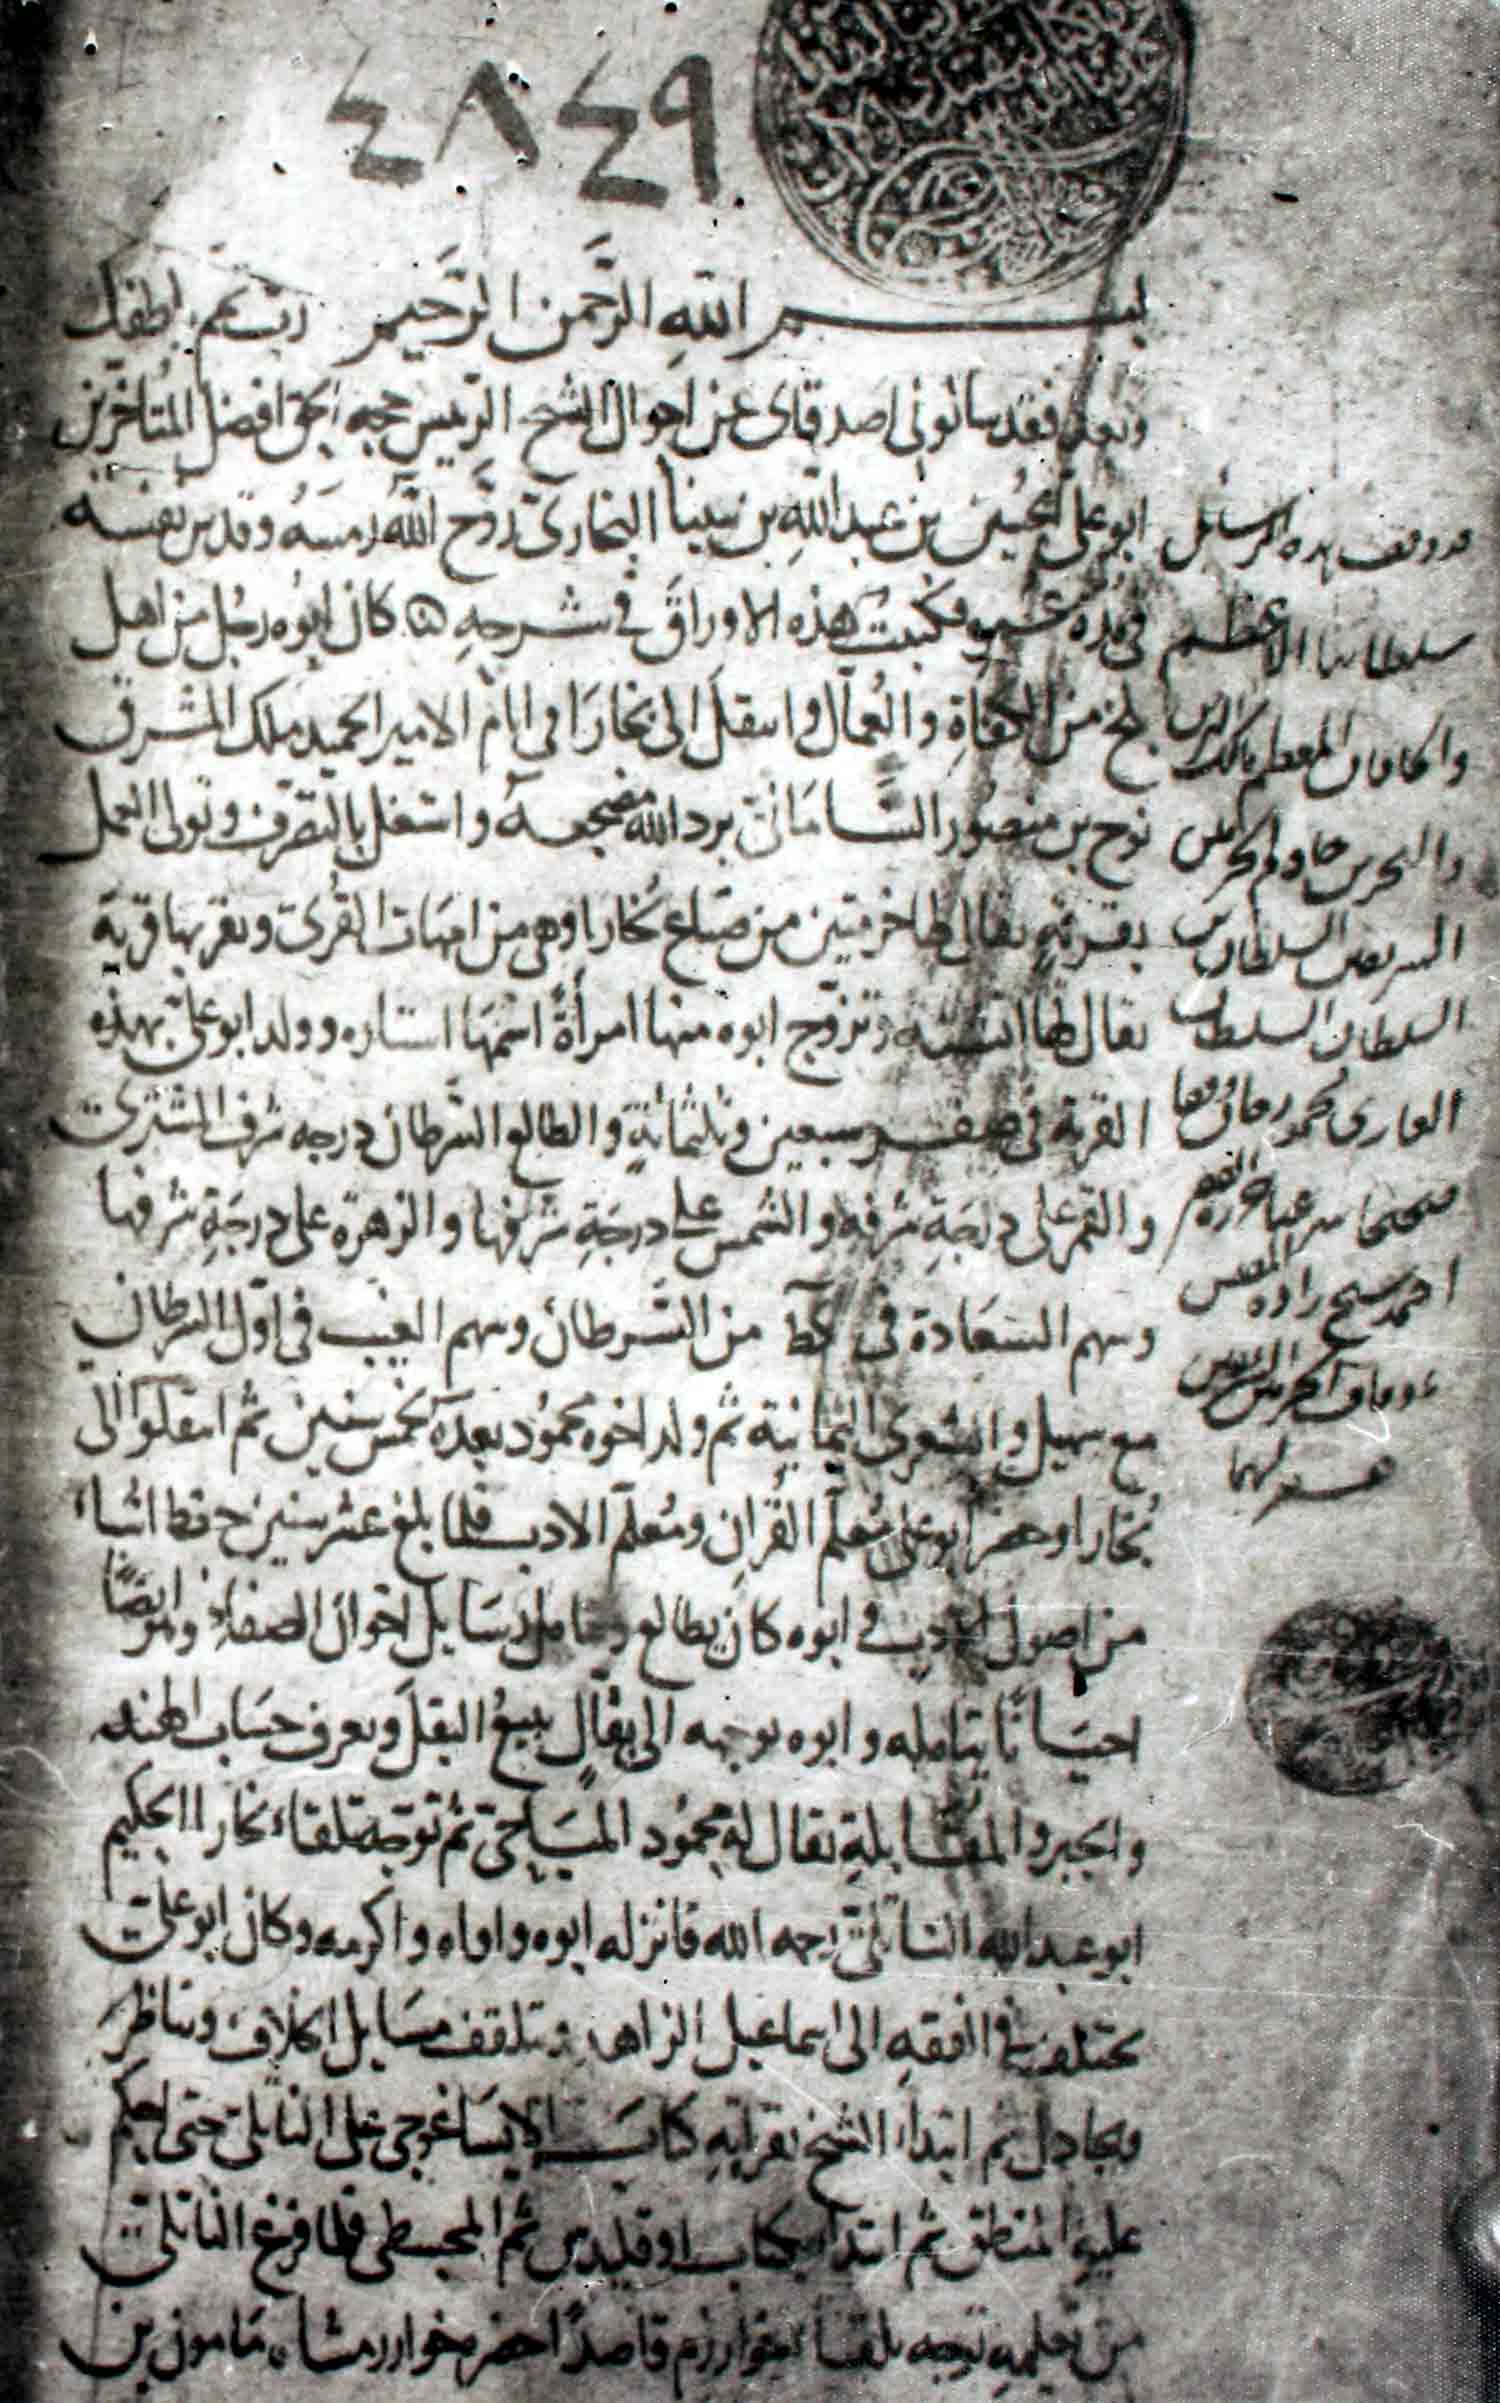 ٤٨٤٩
بسم اللهِ الرَّحمن الرَّحيم رب تمم بلطفك
وبعد فقد سالونى اصدقاى عن احوال الشيخ الرئيس حجة الحق افضل المتأخرين
ابو على الحسين بن عبد اللهِ بن سينا البخارى رَوَّح اللّه رمسَهُ وقدس نفسه
فى مدة عمره فكتبت هذه الاوراق فى شرحهِ كان ابوه رجل من اهل
بلخ من الكفاةِ والعُمّال وانتقل الى بخارَا فى ايام الامير الحميد ملك المشرق
نوح بن منصُور السَّامَانى برد اللّه مضجعه واشتغل بالتصرف وتولى العمل
بقريةٍ يقال لها خرميثن من ضياع بخارا وهى من امهات القُرى وبقربها قرية
يقال لها افشنه وتزوّج ابوه منها امرأةً اسمها ستاره وولد ابو على بهذه
القرية فى صفر سبعين وثلثمائةٍ والطالع السرطان درجه شرف المشترى
والقمر على درجَة شرفِهِ والشمس على درجَةِ شرفها والزهرة على درجَةِ شرفها
وسهم السعَادة فى كط من السَّرطان وسهم الغيب فى اوّل السرطان
مع سهيل والشعرى اليمانية ثم ولد اخوه محمُود بعده بخمس سنين ثم انتقلوا الى
بُخارا وحضر ابو على مُعلّم القُران ومُعلّم الادب فلما بلغ عشر سنين حفظ اشياء
من اصول الادب وابوه كان يطالع ويتامل رسَايل اخوان الصفاء وهو ايضًا
احيَانًا يتامله وابوه يوجهه الى بقالٍ يبيعُ البقل ويعرف حسَاب الهند
والجبر والمقَابلةِ يقال له محمُود المسَاحى ثم توجه تلقاء بخارا الحكيم
ابو عبد الله الناتلى رحمه الله فانزله ابوه واواه واكرمه وكان ابو على
يختلف فى الفقهِ الى اسماعيل الزاهد ويتلقف مسَايل الخلاف ويناظر
ويجادل ثم ابتدأ الشيخ بقرائةِ كتابَ الايسَاغوجى على الناتلى حتى احكم
عليهِ المنطق ثم ابتدأ بكتاب اوقليدس ثم المجسطى فلما فرغ الناتلى
من تعليمهِ توجه تلقاء خوارزم قاصدًا حضرة خوارزمشاه مَامون بن
قد وقف هذه الرسائل
سلطاننا الاعظم
والخاقان المعظم مالك البرين
والبحرين خادم الحرمين
الشريفين السلطان بن
السلطان السلطان
الغازى محمود خان وقفا
صحيحا
احمد شيخ زاده المفتش
باوقاف الحرمين الشريفين
غفر لهما